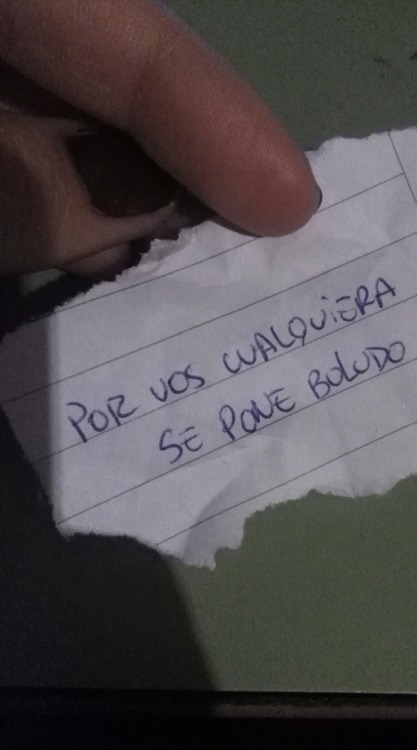 POR VOS CUALQUIERA
SE PONE BOLUDO